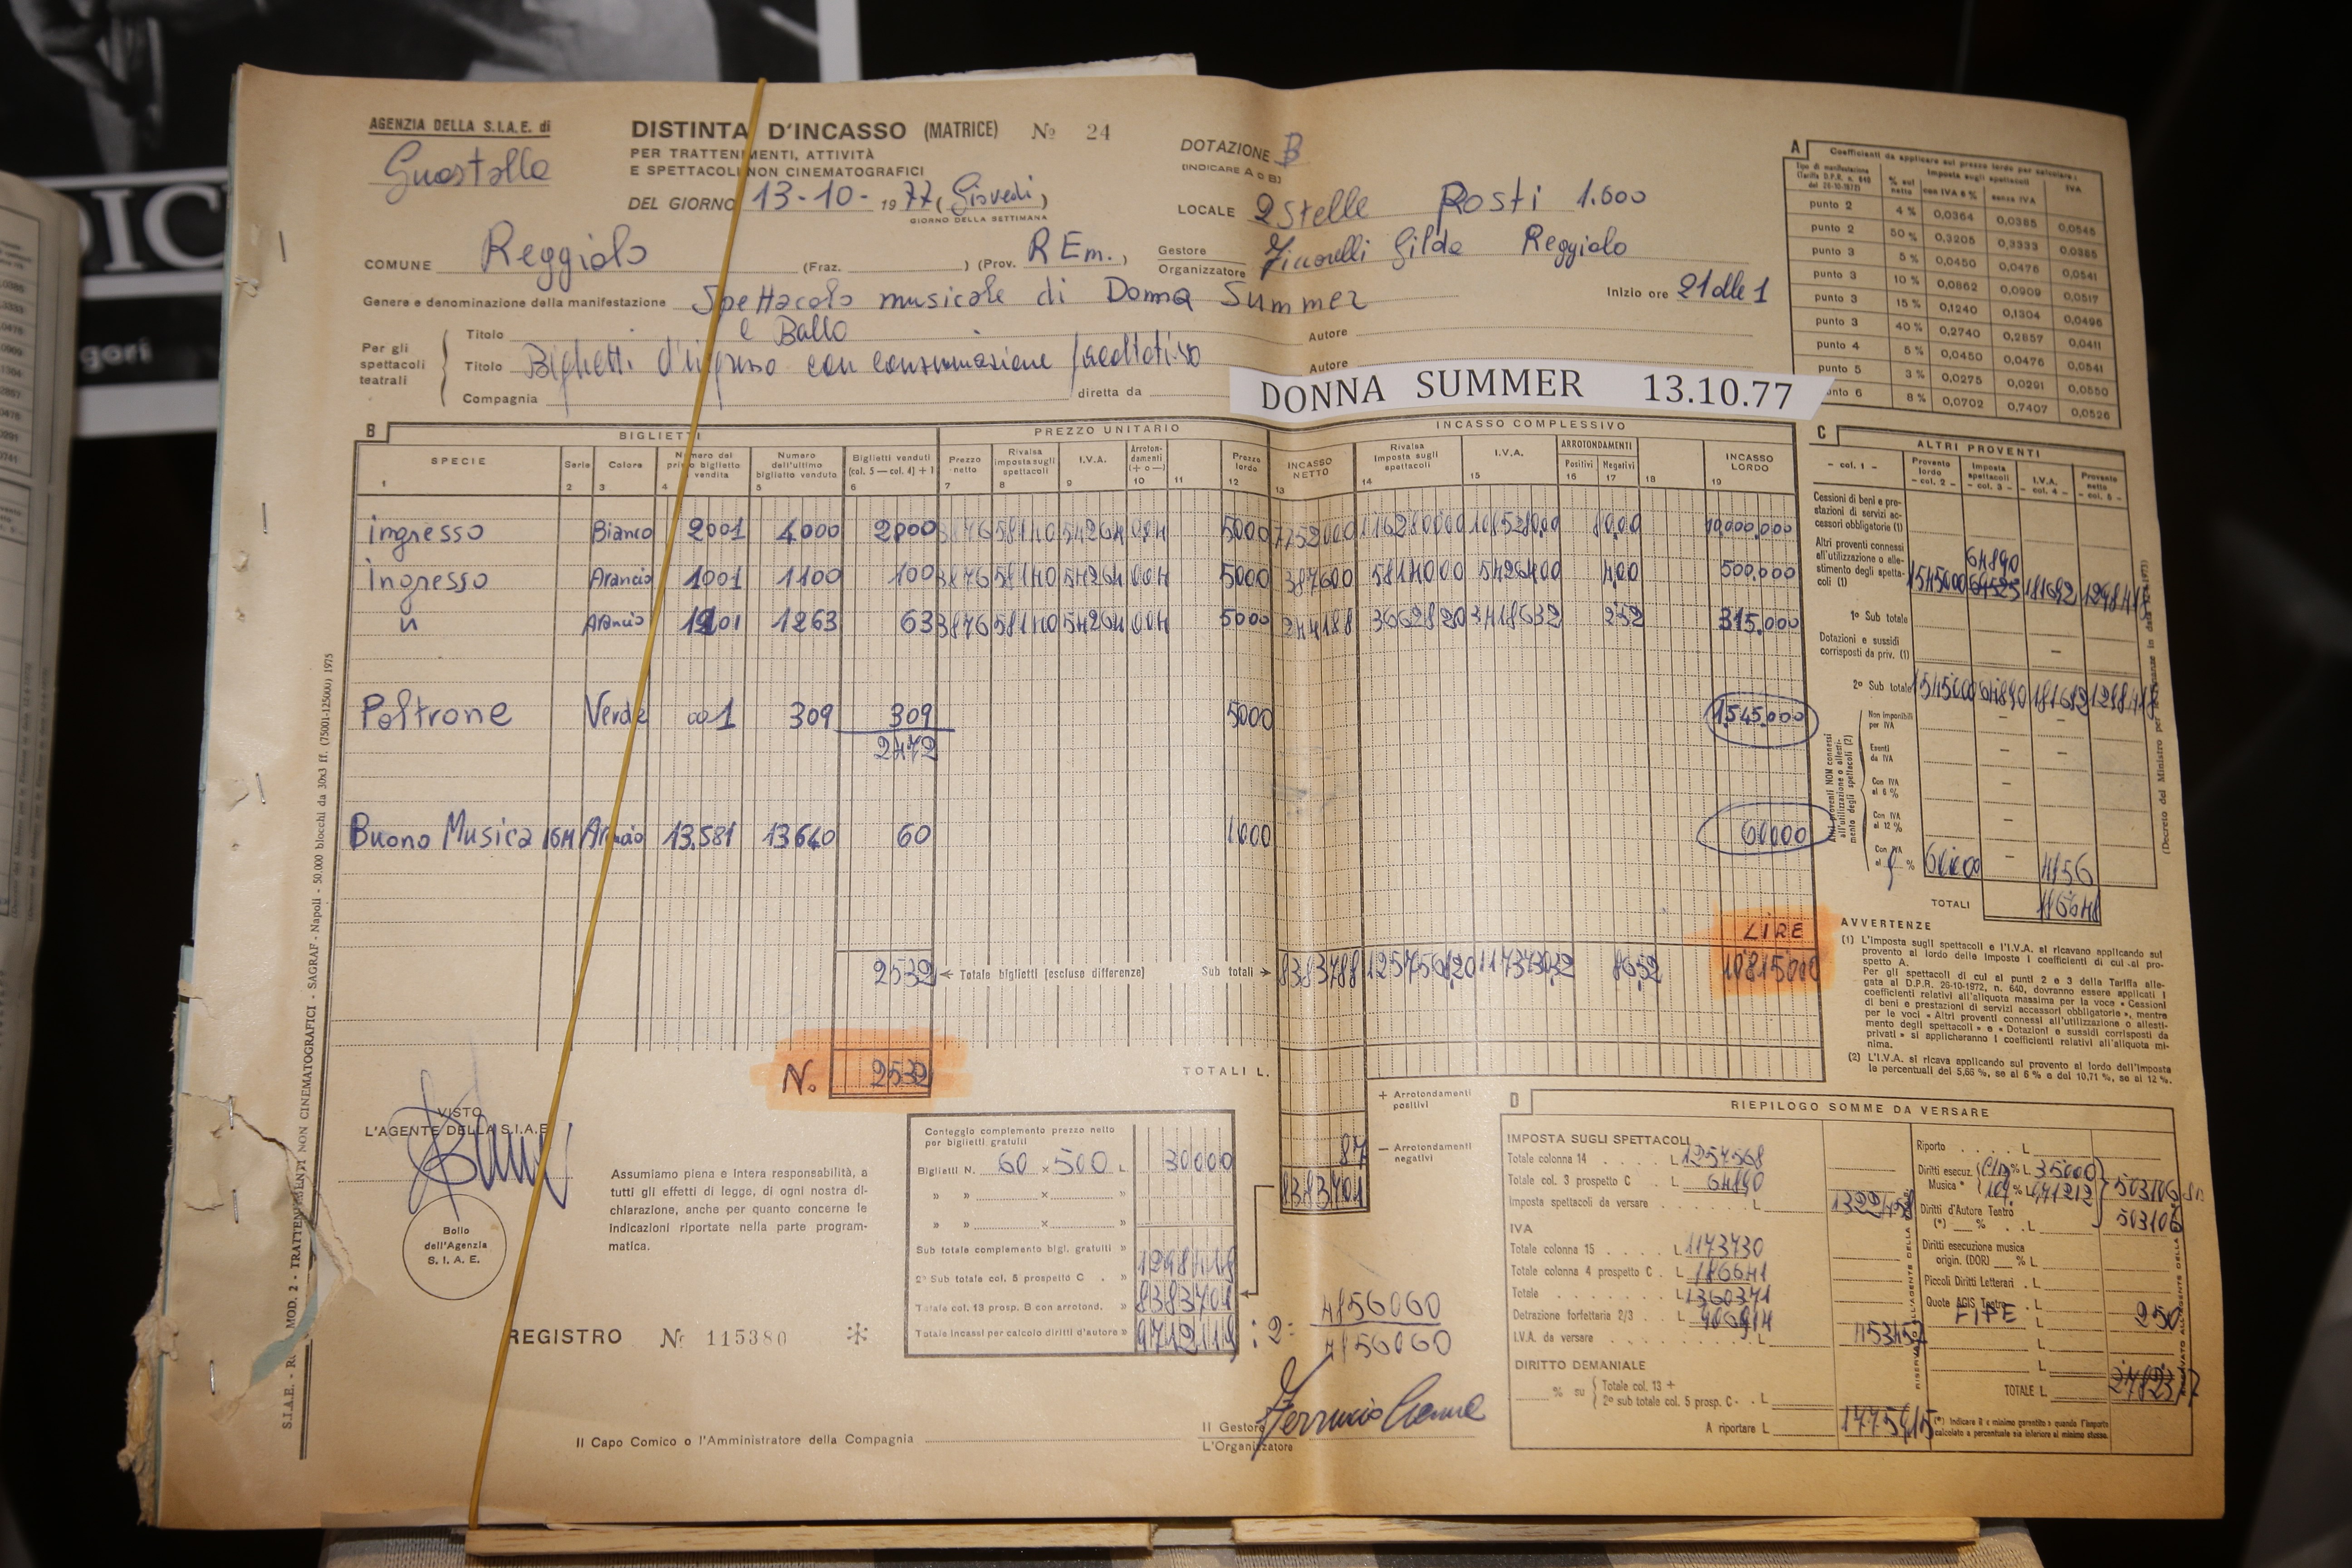 AGENZIA DELLA S.I.A.E. di
Guastalla
DISTINTA D'INCASSO (MATRICE) Nº 24
PER TRATTENIMENTI, ATTIVITÀ
E SPETTACOLI NON CINEMATOGRAFICI
DEL GIORNO 13-10-1977 (Giovedì)
GIORNO DELLA SETTIMANA
DOTAZIONE B
(INDICARE A O B)
LOCALE 2 Stelle Posti 1.600
COMUNE Reggiolo (Fraz. ) (Prov. R Em.)
Gestore
Organizzatore
Gilda Reggiolo
Genere e denominazione della manifestazione Spettacolo musicale di Donna Summer
e Ballo
Inizio ore 21 alle 1
Per gli spettacoli teatrali
Titolo
Autore
Titolo Biglietti d'ingresso con consumazione facoltativa
Autore
Compagnia
diretta da
DONNA SUMMER 13.10.77
A
Coefficienti da applicare sul prezzo lordo per calcolare:
Tipo di manifestazione (Tariffa D.P.R. n. 640 del 26-10-1972)
% sul netto
Imposta sugli spettacoli
con IVA 6 %
senza IVA
IVA
punto 2 4 % 0,0364 0,0385 0,0545
punto 2 50 % 0,3205 0,3333 0,0385
punto 3 5 % 0,0450 0,0476 0,0541
punto 3 10 % 0,0862 0,0909 0,0517
punto 3 15 % 0,1240 0,1304 0,0496
punto 3 40 % 0,2740 0,2857 0,0411
punto 4 5 % 0,0450 0,0476 0,0541
punto 5 3 % 0,0275 0,0291 0,0550
punto 6 8 % 0,0702 0,7407 0,0526
B
BIGLIETTI
PREZZO UNITARIO
INCASSO COMPLESSIVO
SPECIE 1
Serie 2
Colore 3
Numero del primo biglietto vendita 4
Numero dell'ultimo biglietto venduto 5
Biglietti venduti (col. 5 — col. 4) + 1 6
Prezzo netto 7
Rivalsa imposta sugli spettacoli 8
I.V.A. 9
Arrotondamenti (+ o —) 10
11
Prezzo lordo 12
INCASSO NETTO 13
Rivalsa imposta sugli spettacoli 14
I.V.A. 15
ARROTONDAMENTI
Positivi 16
Negativi 17
18
INCASSO LORDO 19
ingresso Bianco 2001 4000 2000 3876 58140 54264 004 5000 7752000 116280000 108528000 8000 10.000.000
ingresso Arancio 1001 1100 100 3876 58140 54264 004 5000 387600 5814000 5426400 400 500.000
" Arancio 1201 1263 63 3876 58140 54264 004 5000 244188 3662820 3418632 252 315.000
Poltrone Verde 001 309 309 5000 1.545.000
2472
Buono Musica Arancio 13.581 13640 60 1.000 60000
LIRE
2532 ← Totale biglietti (escluse differenze) Sub totali → 8383788 125756820 117373032 8652 10815000
N. 2532
TOTALI L.
+ Arrotondamenti positivi
87 — Arrotondamenti negativi
8383701
C
ALTRI PROVENTI
- col. 1 -
Provento lordo - col. 2 -
Imposta spettacoli - col. 3 -
I.V.A. - col. 4 -
Provento netto - col. 5 -
Cessioni di beni e prestazioni di servizi accessori obbligatorie (1)
Altri proventi connessi all'utilizzazione o allestimento degli spettacoli (1)
64890
1545000
1º Sub totale
Dotazioni e sussidi corrisposti da priv. (1)
2º Sub totale 1545000 64890 181692 1298418
Altri proventi NON connessi all'utilizzazione o allestimento degli spettacoli (2)
Non imponibili per IVA
Esenti da IVA
Con IVA al 6 %
Con IVA al 12 %
Con IVA al %
60000
TOTALI
AVVERTENZE
(1) L'imposta sugli spettacoli e l'I.V.A. si ricavano applicando sul
provento al lordo delle imposte i coefficienti di cui al prospetto A.
Per gli spettacoli di cui ai punti 2 e 3 della Tariffa allegata
al D.P.R. 26-10-1972, n. 640, dovranno essere applicati i
coefficienti relativi all'aliquota massima per la voce « Cessioni
di beni e prestazioni di servizi accessori obbligatorie », mentre
per le voci « Altri proventi connessi all'utilizzazione o allestimento
degli spettacoli » e « Dotazioni e sussidi corrisposti da
privati » si applicheranno i coefficienti relativi all'aliquota minima.
(2) L'I.V.A. si ricava applicando sul provento al lordo dell'imposta
le percentuali del 5,66 %, se al 6 % o del 10,71 %, se al 12 %.
VISTO
L'AGENTE DELLA S.I.A.E.
Bollo
dell'Agenzia
S. I. A. E.
Assumiamo piena e intera responsabilità, a
tutti gli effetti di legge, di ogni nostra di-
chiarazione, anche per quanto concerne le
indicazioni riportate nella parte program-
matica.
REGISTRO Nº 115380
Conteggio complemento prezzo netto
per biglietti gratuiti
Biglietti N. 60 × 500 L 30000
» » × »
» » × »
Sub totale complemento bigl. gratuiti »
2º Sub totale col. 5 prospetto C . » 1298418
Totale col. 13 prosp. B con arrotond. » 8383701
Totale incassi per calcolo diritti d'autore » 9712119
: 2 = 4856060
4856060
Il Capo Comico o l'Amministratore della Compagnia
Il Gestore
L'Organizzatore
D
RIEPILOGO SOMME DA VERSARE
IMPOSTA SUGLI SPETTACOLI
Totale colonna 14 L 1257568
Totale col. 3 prospetto C L 64890
Imposta spettacoli da versare L 1322458
IVA
Totale colonna 15 L 1173730
Totale colonna 4 prospetto C . L 186641
Totale L 1360371
Detrazione forfettaria 2/3 L 906914
I.V.A. da versare L 453457
DIRITTO DEMANIALE
% su
Totale col. 13 +
2º sub totale col. 5 prosp. C - L
A riportare L 1775915
Riporto L
Diritti esecuz. Musica *
% L 35000
10 % L
503106
Diritti d'Autore Teatro (*) % L
503106
Diritti esecuzione musica origin. (DOR) % L
Piccoli Diritti Letterari . L
Quote AGIS Teatro . L
FIPE L 250
L
L
TOTALE L
(*) Indicare il « minimo garantito » quando l'importo
calcolato a percentuale sia inferiore al minimo stesso.
RISERVATO ALL'AGENTE DELLA
MOD. 2 - TRATTENIMENTI NON CINEMATOGRAFICI - SAGRAF - Napoli - 50.000 blocchi da 30x3 ff. (75001-125000) 1975